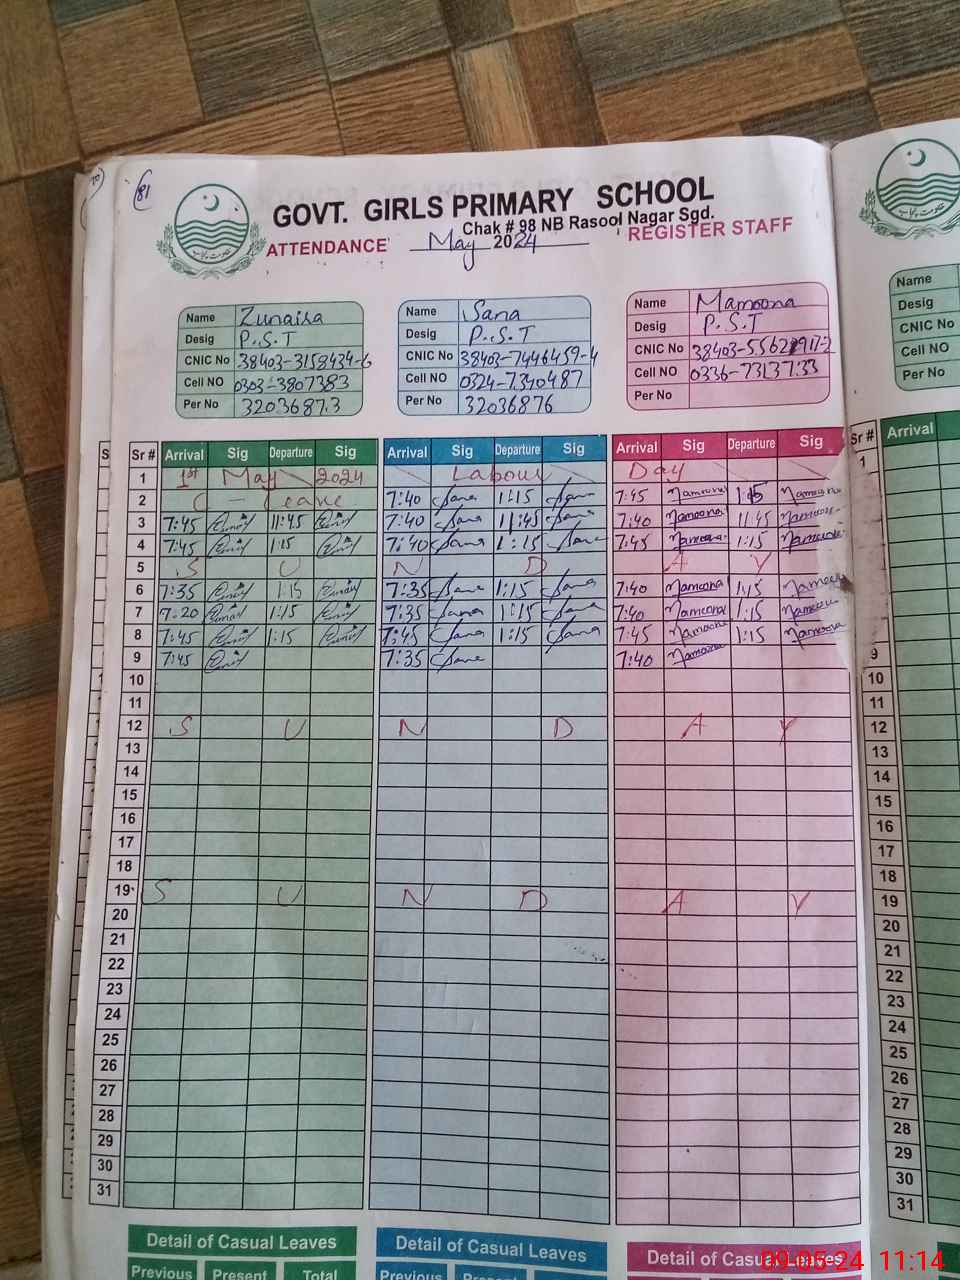 81
GOVT. GIRLS PRIMARY SCHOOL
Chak # 98 NB Rasool Nagar Sgd.
ATTENDANCE May 2024 REGISTER STAFF
Name Zunaira Name Sana Name Mamoona Name
Desig P.S.T Desig P.S.T Desig P.S.T Desig
CNIC No 38403-3158434-6 CNIC No 38403-7446459-4 CNIC No CNIC No
Cell NO 0303-3807383 Cell NO 0324-7340487 Cell NO 0336-7313733 Cell NO
Per No 32036873 Per No 32036876 Per No Per No
Sr # Arrival Sig Departure Sig Arrival Sig Departure Sig Arrival Sig Departure Sig Sr # Arrival
1 1st May 2024 Labour Day 1
2 C - Leave 7:40 Sana 1:15 Sana 7:45 Mamoona 1:15 Mamoona
3 7:45 11:45 7:40 Sana 11:45 Sana 7:40 Mamoona 11:45 Mamoona
4 7:45 1:15 7:40 Sana 1:15 Sana 7:45 Mamoona 1:15 Mamoona
5 S U N D A Y
6 7:35 1:15 7:35 Sana 1:15 Sana 7:40 Mamoona 1:15 Mamoona
7 7:20 1:15 7:35 Sana 1:15 Sana 7:40 Mamoona 1:15 Mamoona
8 7:45 1:15 7:45 Sana 1:15 Sana 7:45 Mamoona 1:15 Mamoona
9 7:45 7:35 Sana 7:40 Mamoona 9
10 10
11 11
12 S U N D A Y 12
13 13
14 14
15 15
16 16
17 17
18 18
19 S U N D A Y 19
20 20
21 21
22 22
23 23
24 24
25 25
26 26
27 27
28 28
29 29
30 30
31 31
Detail of Casual Leaves Detail of Casual Leaves Detail of Casual Leaves
Previous Present Total Previous
09-05-24 11:14